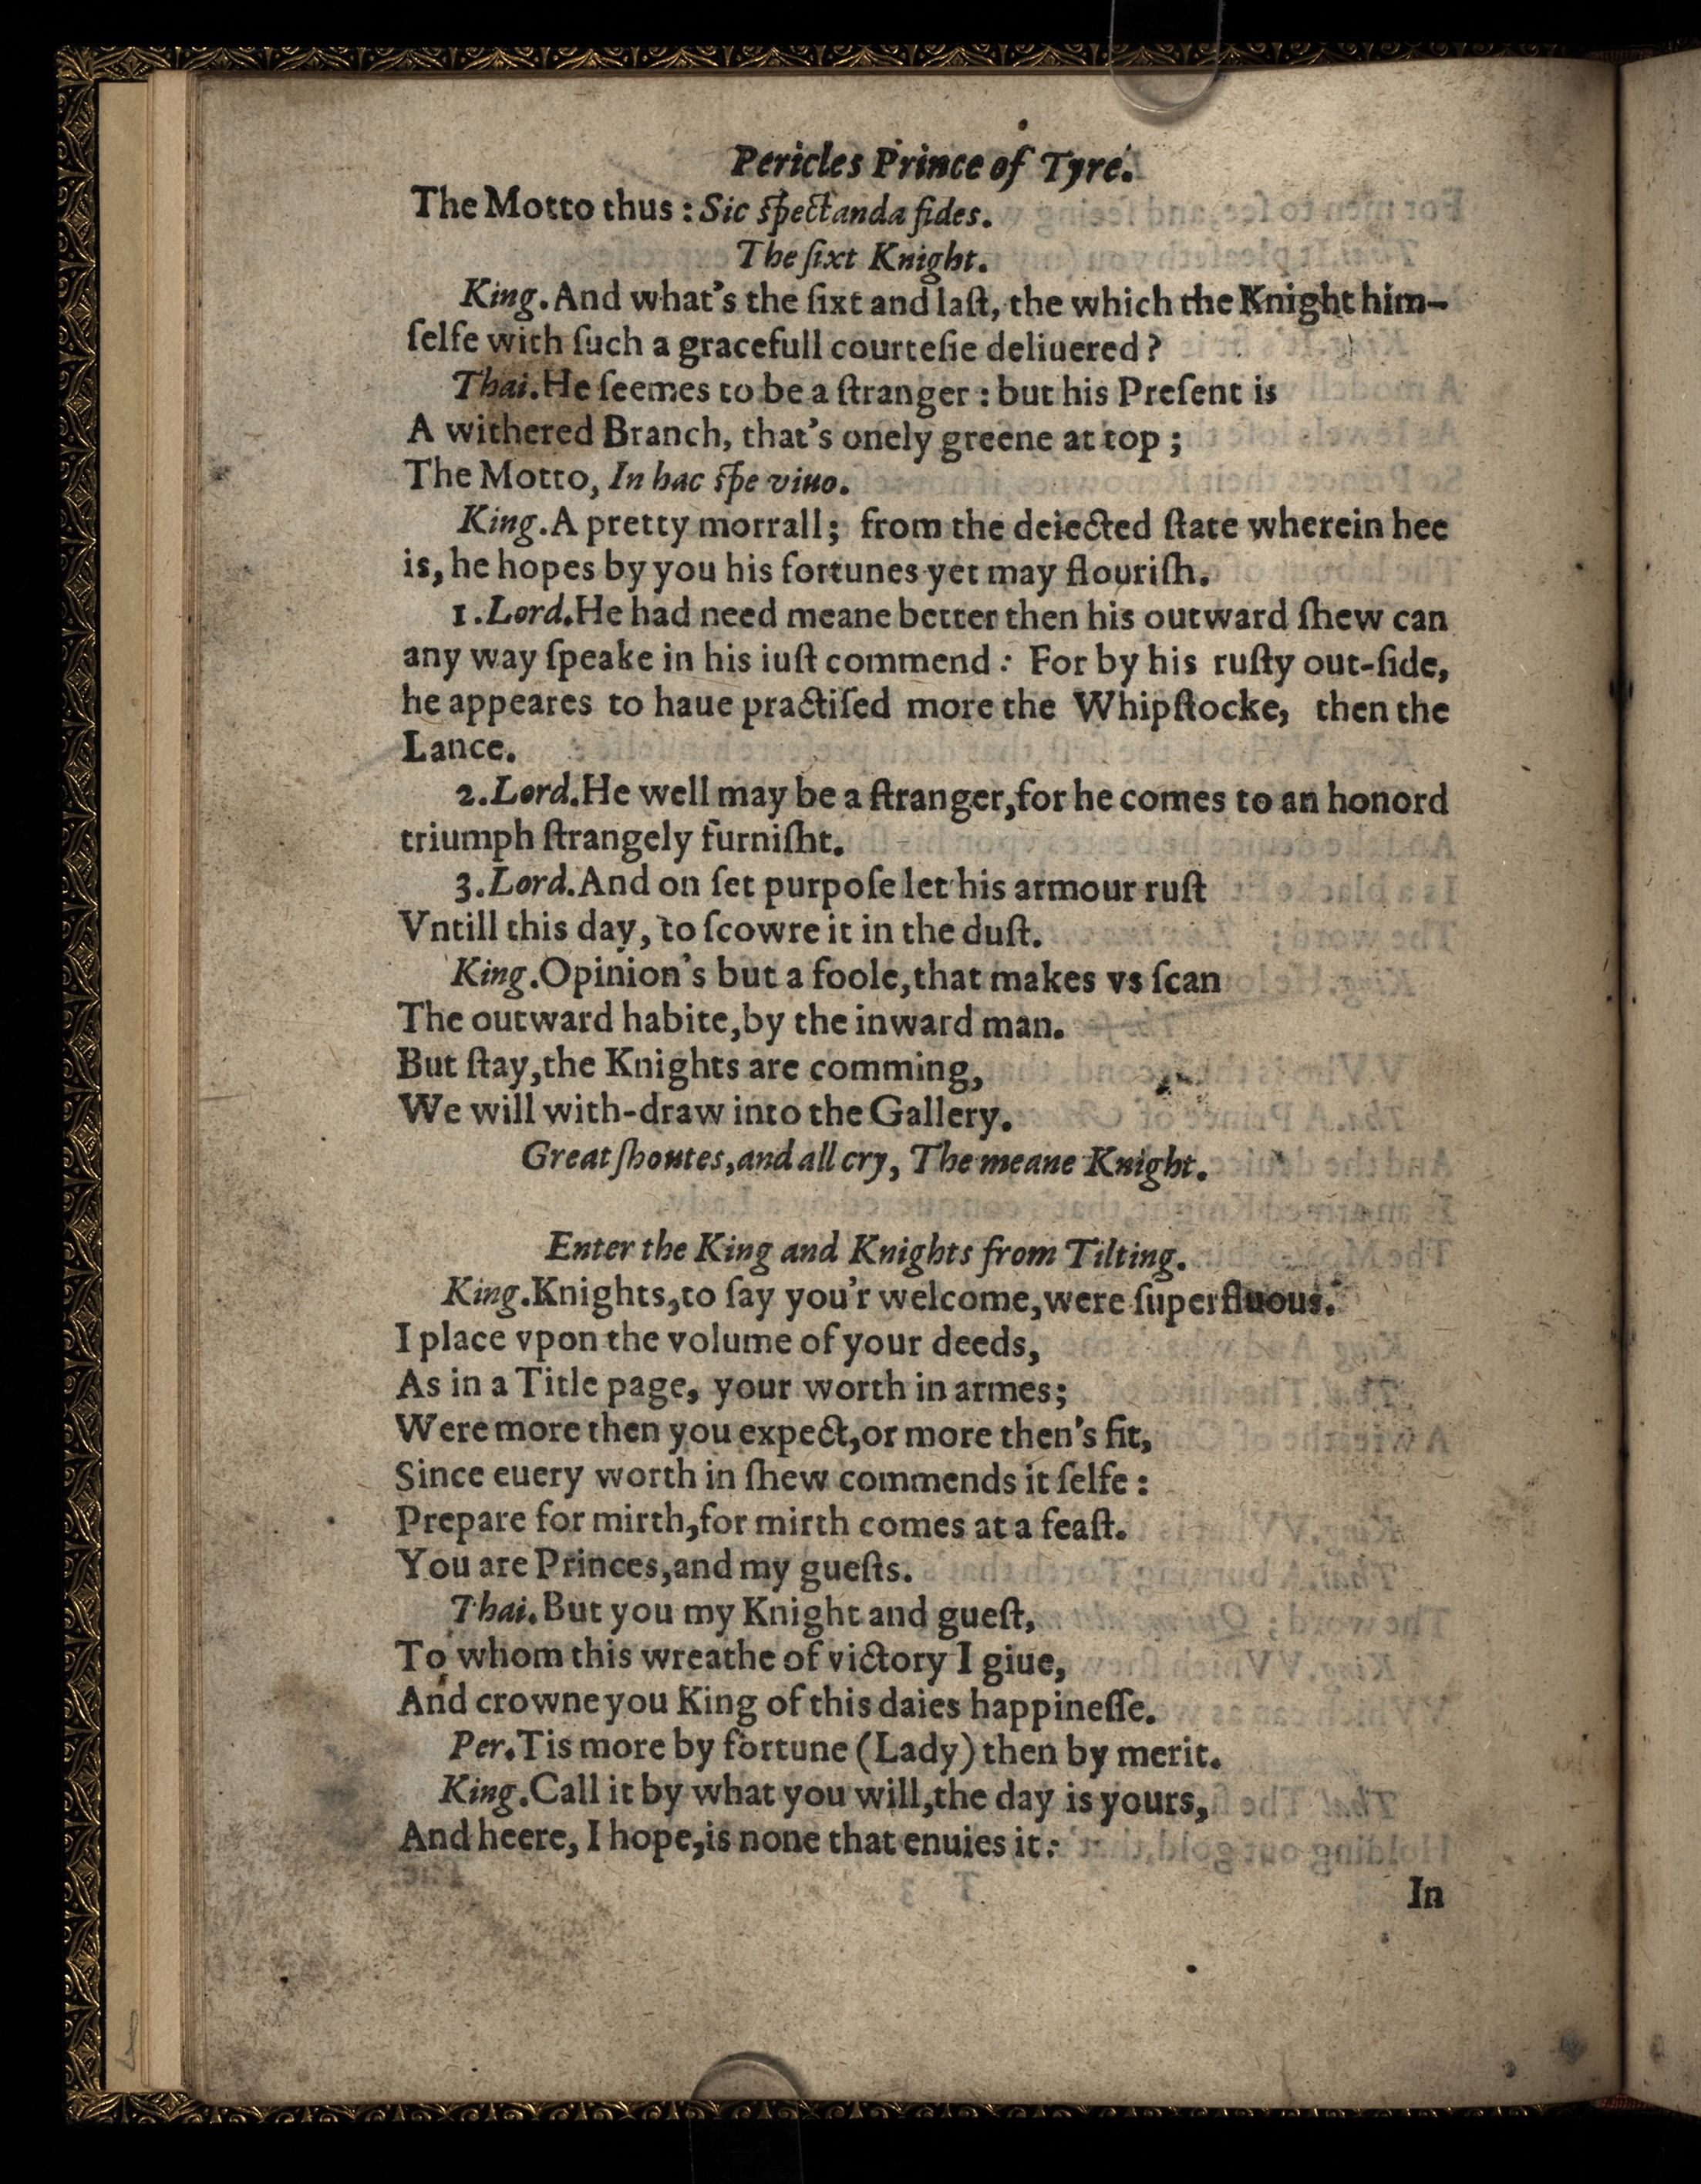 Pericles Prince of Tyre.
The Motto thus : Sic ſpectanda fides.
The ſixt Knight.
King. And what's the ſixt and laſt, the which the Knight him-
ſelfe with ſuch a gracefull courteſie deliuered ?
Thai. He ſeemes to be a ſtranger : but his Preſent is
A withered Branch, that's onely greene at top ;
The Motto, In hac ſpe viuo.
King. A pretty morrall; from the deiected ſtate wherein hee
is, he hopes by you his fortunes yet may flouriſh.
1. Lord. He had need meane better then his outward ſhew can
any way ſpeake in his iuſt commend : For by his ruſty out-ſide,
he appeares to haue practiſed more the Whipſtocke, then the
Lance.
2. Lord. He well may be a ſtranger, for he comes to an honord
triumph ſtrangely furniſht.
3. Lord. And on ſet purpoſe let his armour ruſt
Vntill this day, to ſcowre it in the duſt.
King. Opinion's but a foole, that makes vs ſcan
The outward habite, by the inward man.
But ſtay, the Knights are comming,
We will with-draw into the Gallery.
Great ſhoutes, and all cry, The meane Knight.
Enter the King and Knights from Tilting.
King. Knights, to ſay you'r welcome, were ſuperfluous.
I place vpon the volume of your deeds,
As in a Title page, your worth in armes;
Were more then you expect, or more then's fit,
Since euery worth in ſhew commends it ſelfe :
Prepare for mirth, for mirth comes at a feaſt.
You are Princes, and my gueſts.
Thai. But you my Knight and gueſt,
To whom this wreathe of victory I giue,
And crowne you King of this daies happineſſe.
Per. Tis more by fortune (Lady) then by merit.
King. Call it by what you will, the day is yours,
And heere, I hope, is none that enuies it :
In